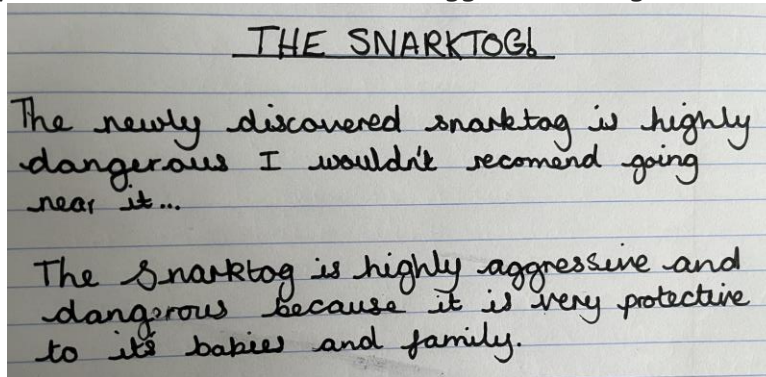 THE SNARKTOG!
The newly discovered snarktog is highly
dangerous I wouldn't recomend going
near it...
The Snarktog is highly aggressive and
dangorous because it is very protective
to its babies and family.